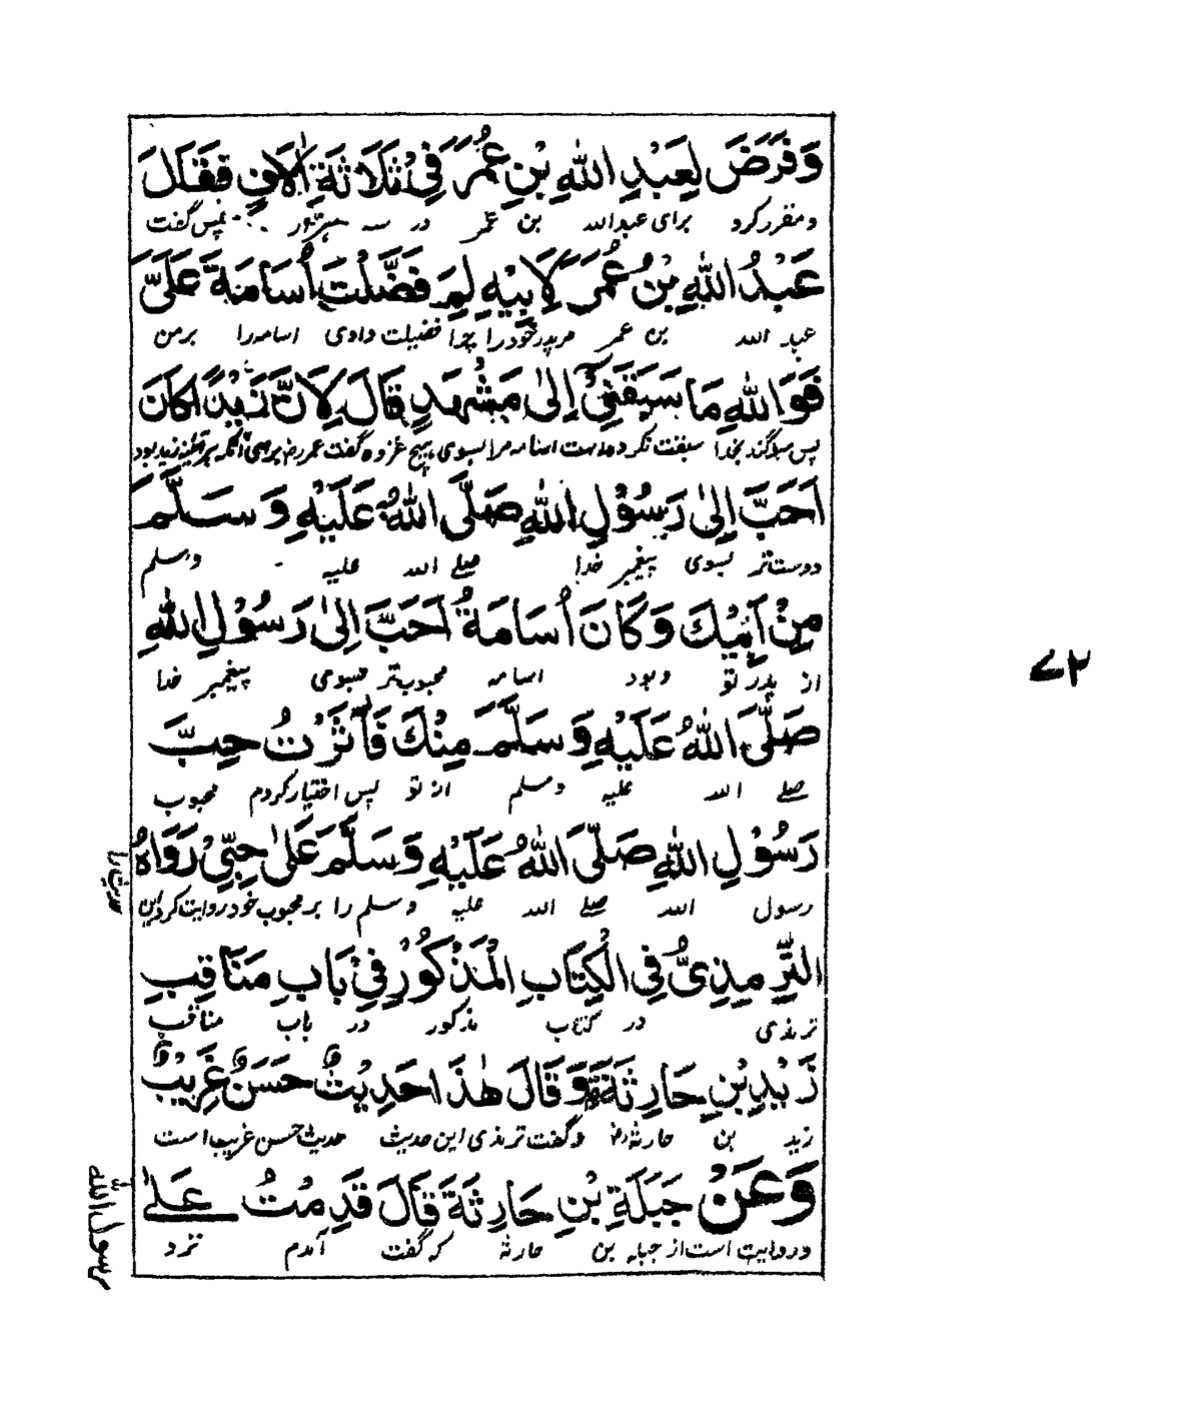 وَفَرَضَ لِعَبْدِ اللهِ بْنِ عُمَرَ فِیْ ثَلَاثَةِ اٰلَافٍ فَقَالَ
ومقرر کرد برای عبدالله بن عمر در سه هزار پس گفت
عَبْدُ اللهِ بْنُ عُمَرَ لِاَبِیْهِ لِمَ فَضَّلْتَ اُسَامَةَ عَلَیَّ
عبد الله بن عمر مر پدر خود را چرا فضیلت دادی اسامه را بر من
فَوَاللهِ مَا سَبَقَنِیْ اِلیٰ مَشْهَدٍ قَالَ لِاَنَّ زَیْدًا کَانَ
پس سوگند بخدا سبقت نکرده است اسامه مرا بسوی هیچ غزوه گفت عمر زید بود
اَحَبَّ اِلیٰ رَسُوْلِ اللهِ صَلَّی اللهُ عَلَیْهِ وَسَلَّمَ
دوست تر بسوی پیغمبر خدا صلے الله علیه وسلم
مِنْ اَبِیْكَ وَکَانَ اُسَامَةُ اَحَبَّ اِلیٰ رَسُوْلِ اللهِ
از پدر تو وبود اسامه محبوب تر بسوی پیغمبر خدا
صَلَّی اللهُ عَلَیْهِ وَسَلَّمَ مِنْكَ فَاٰثَرْتُ حِبَّ
صلے الله علیه وسلم از تو پس اختیار کردم محبوب
رَسُوْلِ اللهِ صَلَّی اللهُ عَلَیْهِ وَسَلَّمَ عَلیٰ حِبِّیْ رَوَاهُ
رسول الله صلے الله علیه وسلم را بر محبوب خود روایت کرد این
حدیث را
التِّرْمِذِیُّ فِی الْکِتَابِ الْمَذْکُوْرِ فِیْ بَابِ مَنَاقِبِ
ترمذی در کتاب مذکور در باب مناقب
زَیْدِ بْنِ حَارِثَةَ وَقَالَ هٰذَا حَدِیْثٌ حَسَنٌ غَرِیْبٌ
زید بن حارثه رض وگفت ترمذی این حدیث حدیث حسن غریب است
وَعَنْ جَبَلَةَ بْنِ حَارِثَةَ قَالَ قَدِمْتُ عَلیٰ
وروایت است از جبله بن حارثه که گفت آمدم نزد
رسول الله
۷۲